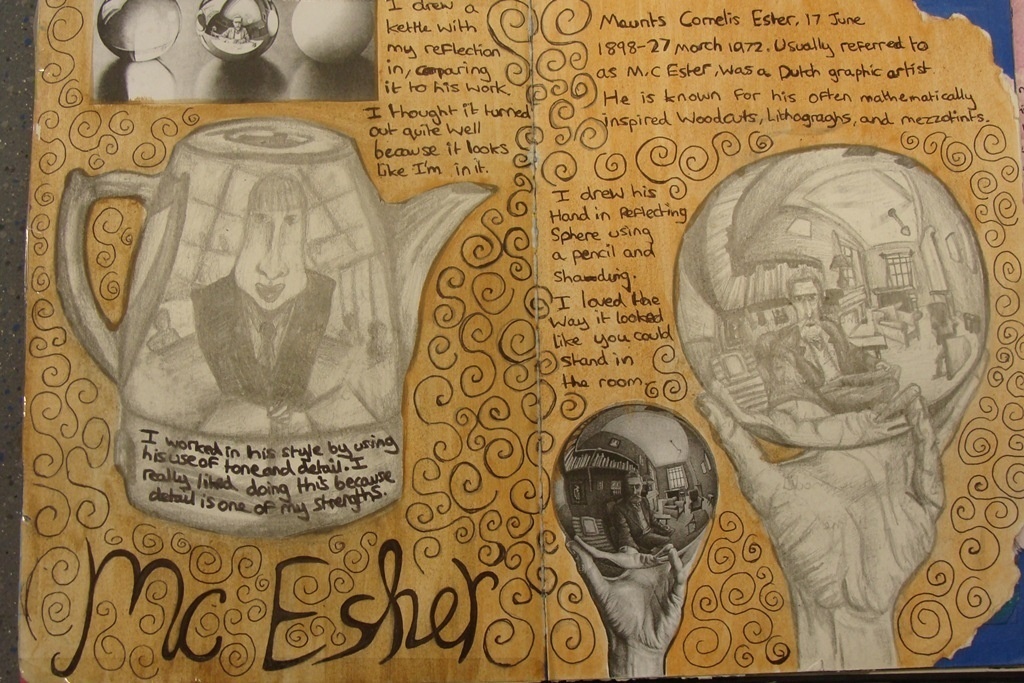 I drew a
kettle with
my reflection
in, comparing
it to his work.
I thought it turned
out quite well
because it looks
like I'm in it.
I worked in his style by using
his use of tone and detail. I
really liked doing this because
detail is one of my strengths.
Mc Esher
Maunts Cornelis Esher, 17 June
1898-27 March 1972. Usually referred to
as M.C Esher, was a Dutch graphic artist.
He is known for his often mathematically
inspired Woodcuts, Lithograghs, and mezzotints.
I drew his
Hand in Reflecting
Sphere using
a pencil and
shading.
I loved the
way it looked
like you could
stand in
the room.